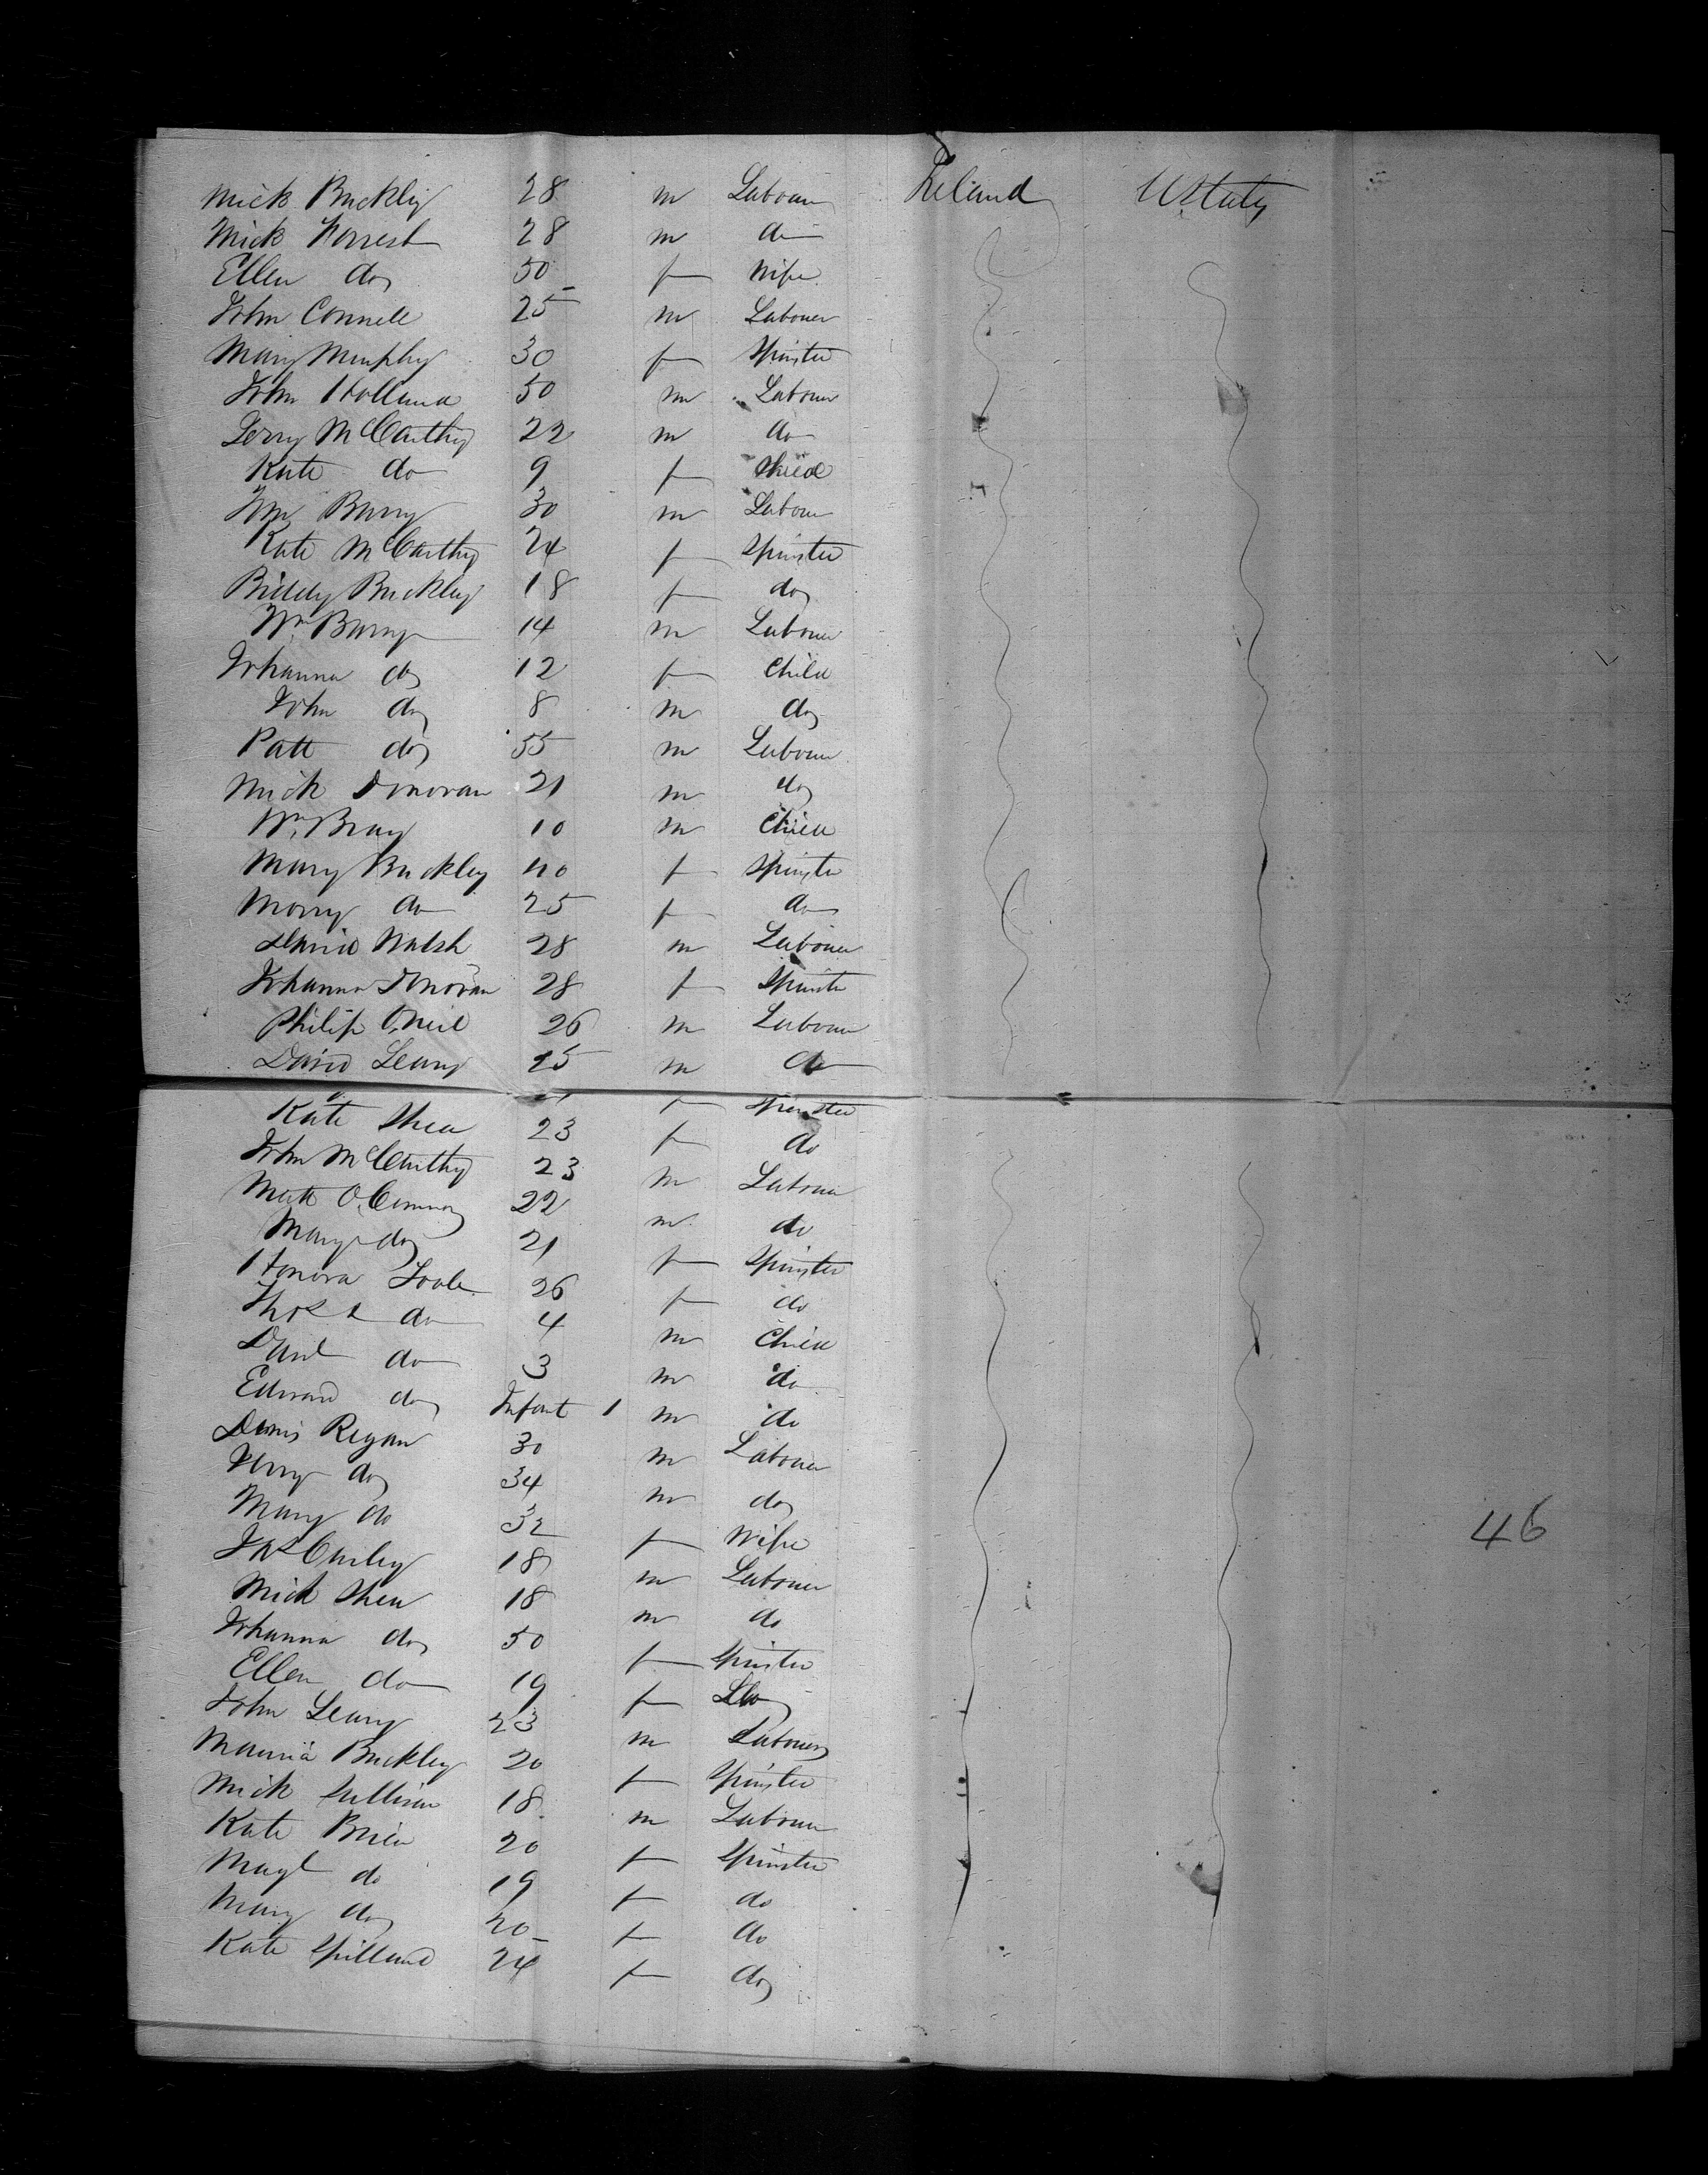 Mick Buckley 28 m Labourer Ireland U States
Mick Forrest 28 m do
Ellen do 50 f Wife
John Connell 25 m Labourer
Mary Murphy 30 f Spinster
John Holland 50 m Labourer
Jerry McCarthy 22 m do
Kate do 9 f Child
Barry 30 m Labour
Kate McCarthy 24 f Spinster
Biddy Buckley 18 f do
Wm Barry 14 m Labourer
Johanna do 12 f Child
John do 8 m do
Patt do 55 m Labourer
Mick Donovan 21 m do
Wm Bray 10 m Child
Mary Buckley 40 f Spinster
Morry do 25 f do
David Walsh 28 m Labourer
Johanna Donovan 28 f Spinster
Philip O'Neil 26 m Labourer
David Leary 25 m do
f Spinster
Kate Shea 23 f do
John McCarthy 23 m Labourer
Matt O'Connor 22 m do
Mary do 21 f Spinster
Honora Toole 26 f do
Thos do 4 m Child
Danl do 3 m do
Edward do Infant 1 m do
Denis Regan 30 m Labourer
Jerry do 34 m do
Mary do 32 f Wife
Jas Curley 18 m Labourer 46
Mick Shea 18 m do
Johanna do 50 f Spinster
Ellen do 19 f do
John Leary 23 m Labourer
Mauria Buckley 20 f Spinster
Mick Sullivan 18 m Labourer
Kate Brien 20 f Spinster
Magt do 19 f do
Mary do 20 f do
Kate Spillane 24 f do